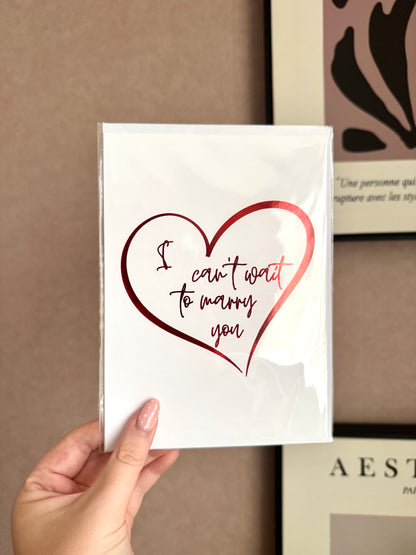 "Une personne qui
rupture avec les sty
I can't wait
to marry
you
AEST
PA